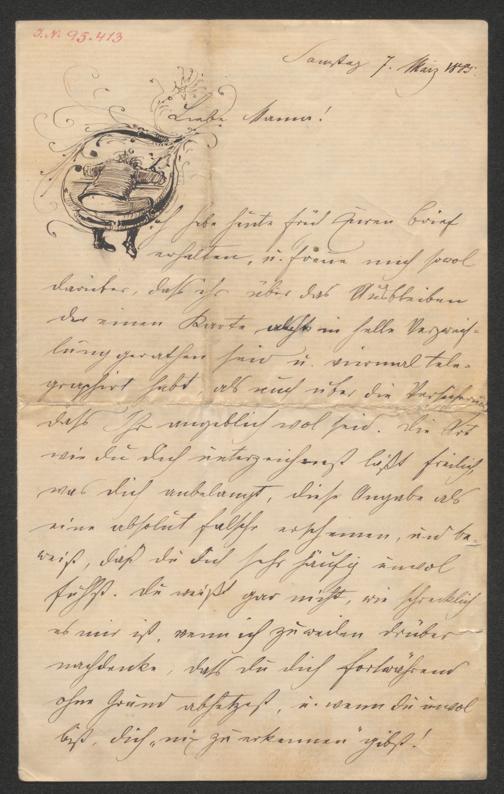 J.N. 95.413
Samstag 7. März 1885
Liebe Mama!
Ich habe heute früh Euren Brief
erhalten, u. freue mich sowol
darüber, dass ihr über das Ausbleiben
der einen Karte nicht in helle Verzweif-
lung gerathen seid u. viermal tele-
graphirt habt als auch über die Versicherung
dass Ihr angeblich wol seid. Die Art
wie du dich unterzeichnest läßt freilich,
was dich anbelangt, diese Angabe als
eine absolut falsche erscheinen, und be-
weist, daß du dich sehr häufig unwol
fühlst. Du weißt gar nicht, wie schrecklich
es mir ist, wenn ich zuweilen drüber
nachdenke, dass du dich fortwährend
ohne Grund abhetzest, u. wenn du unwol
bist, dich „nix zu erkennen" gibst!